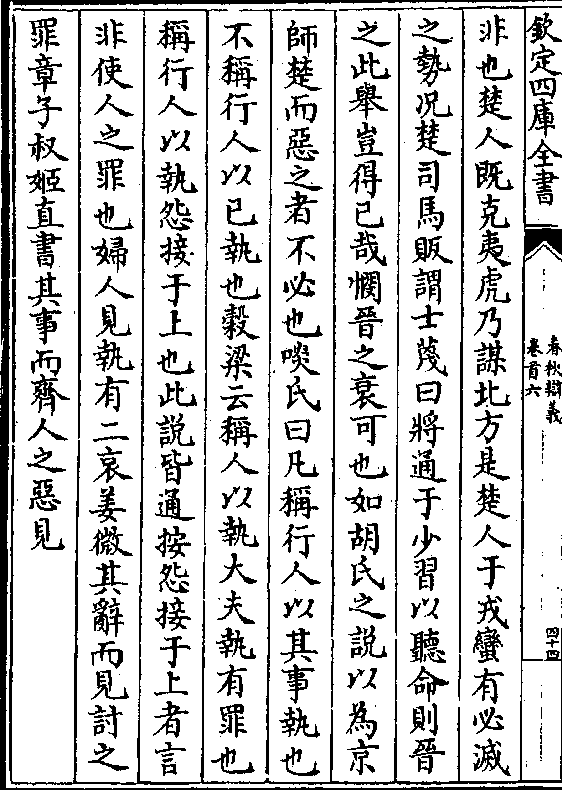 欽定四庫全書
春秋辯義
卷首六
四十四
非也楚人既克夷虎乃謀北方是楚人于戎蠻有必滅
之勢况楚司馬販謂士蔑曰將通于少習以聽命則晉
之此舉豈得已哉憫晉之衰可也如胡氏之說以為京
師楚而惡之者不必也啖氏曰凡稱行人以其事執也
不稱行人以已執也穀梁云稱人以執大夫執有罪也
稱行人以執怨接于上也此說皆通按怨接于上者言
非使人之罪也婦人見執有二哀姜微其辭而見討之
罪章子叔姬直書其事而齊人之惡見